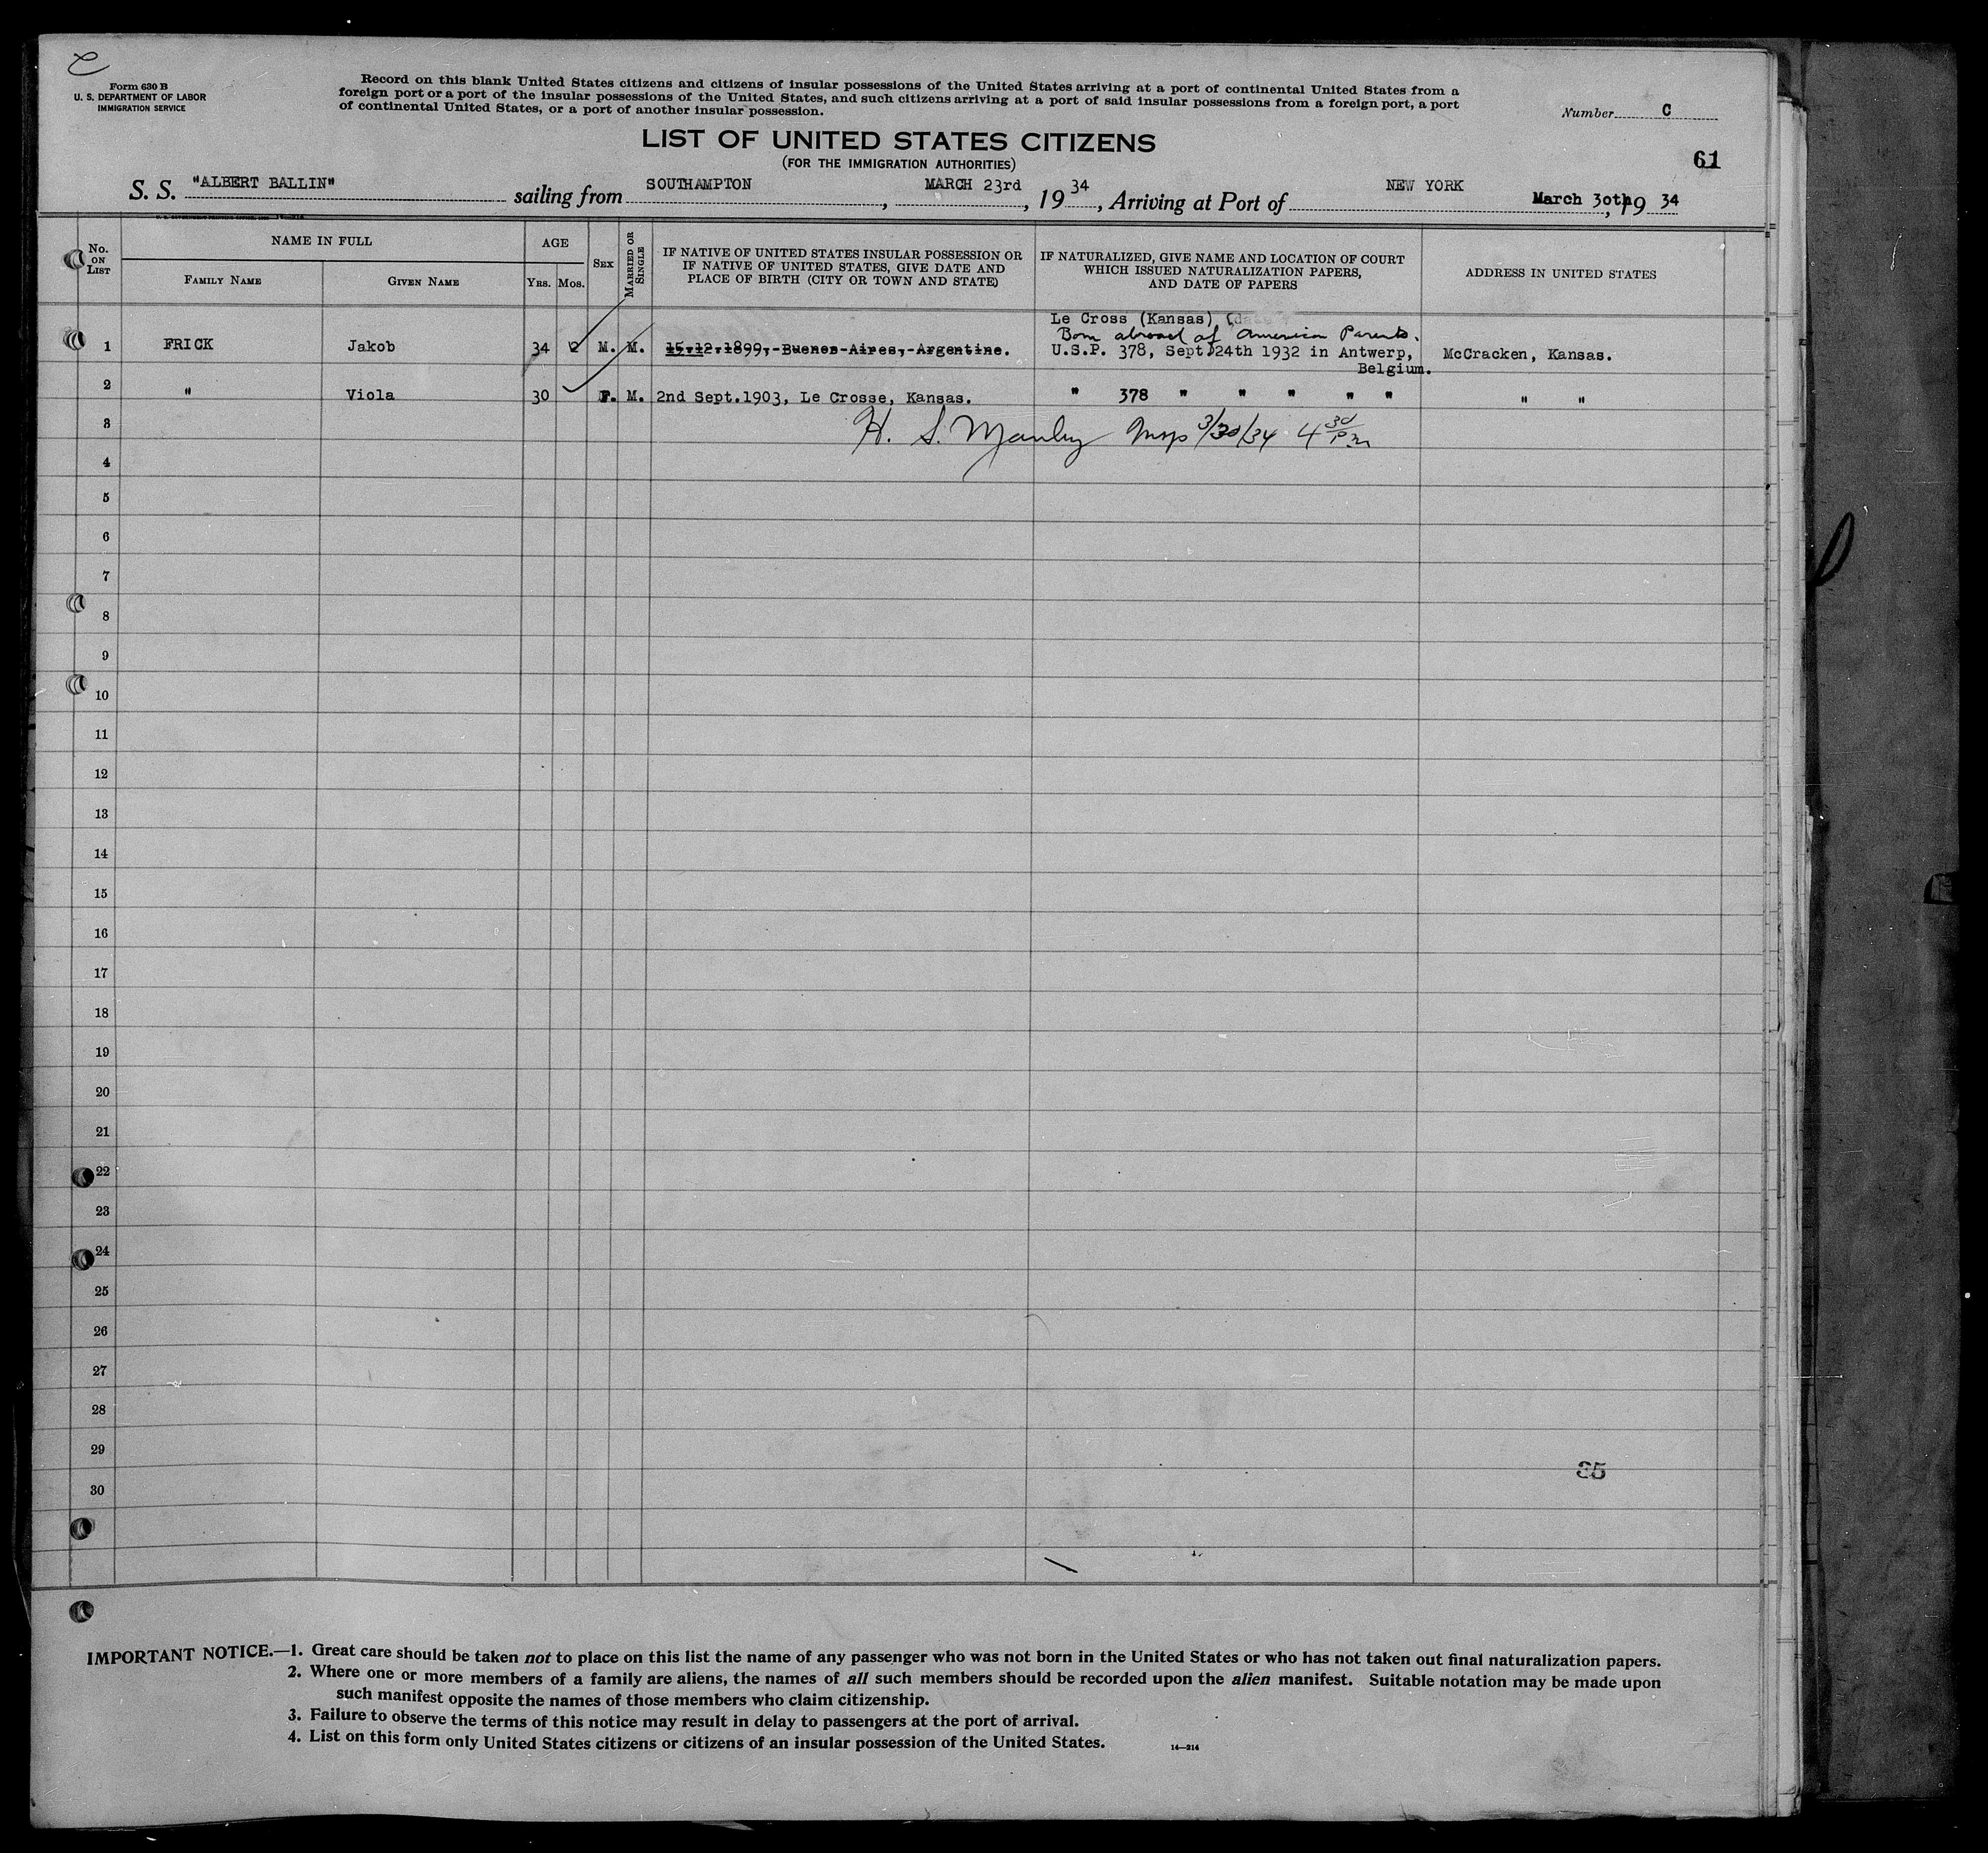 C
Form 630 B
U. S. DEPARTMENT OF LABOR
IMMIGRATION SERVICE
Record on this blank United States citizens and citizens of insular possessions of the United States arriving at a port of continental United States from a
foreign port or a port of the insular possessions of the United States, and such citizens arriving at a port of said insular possessions from a foreign port, a port
of continental United States, or a port of another insular possession.
Number C
LIST OF UNITED STATES CITIZENS
(FOR THE IMMIGRATION AUTHORITIES)
61
S. S. "ALBERT BALLIN" sailing from SOUTHAMPTON, MARCH 23rd, 1934, Arriving at Port of NEW YORK March 30th, 1934
No. ON LIST
NAME IN FULL
FAMILY NAME
GIVEN NAME
AGE
YRS. MOS.
SEX
MARRIED OR SINGLE
IF NATIVE OF UNITED STATES INSULAR POSSESSION OR
IF NATIVE OF UNITED STATES, GIVE DATE AND
PLACE OF BIRTH (CITY OR TOWN AND STATE)
IF NATURALIZED, GIVE NAME AND LOCATION OF COURT
WHICH ISSUED NATURALIZATION PAPERS,
AND DATE OF PAPERS
ADDRESS IN UNITED STATES
Le Cross (Kansas)
Born abroad of American Parents.
1 FRICK Jakob 34 2 M. M. 15.12.1899,-Buenes-Aires,-Argentine. U.S.P. 378, Sept.24th 1932 in Antwerp, McCracken, Kansas.
Belgium.
2 " Viola 30 F. M. 2nd Sept.1903, Le Crosse, Kansas. " 378 " " " " " " "
3 H. S. Manley Insp 3/30/34 4 30 PM
4
5
6
7
8
9
10
11
12
13
14
15
16
17
18
19
20
21
22
23
24
25
26
27
28
29
85
30
IMPORTANT NOTICE.—1. Great care should be taken not to place on this list the name of any passenger who was not born in the United States or who has not taken out final naturalization papers.
2. Where one or more members of a family are aliens, the names of all such members should be recorded upon the alien manifest. Suitable notation may be made upon
such manifest opposite the names of those members who claim citizenship.
3. Failure to observe the terms of this notice may result in delay to passengers at the port of arrival.
4. List on this form only United States citizens or citizens of an insular possession of the United States.
14—214